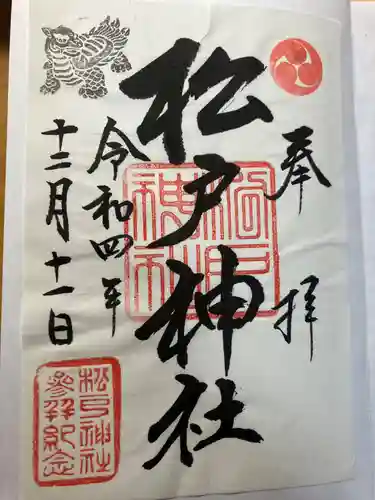 奉拝
松戸神社
令和四年
十二月十一日
松戸神社
松戸神社
参拝紀念